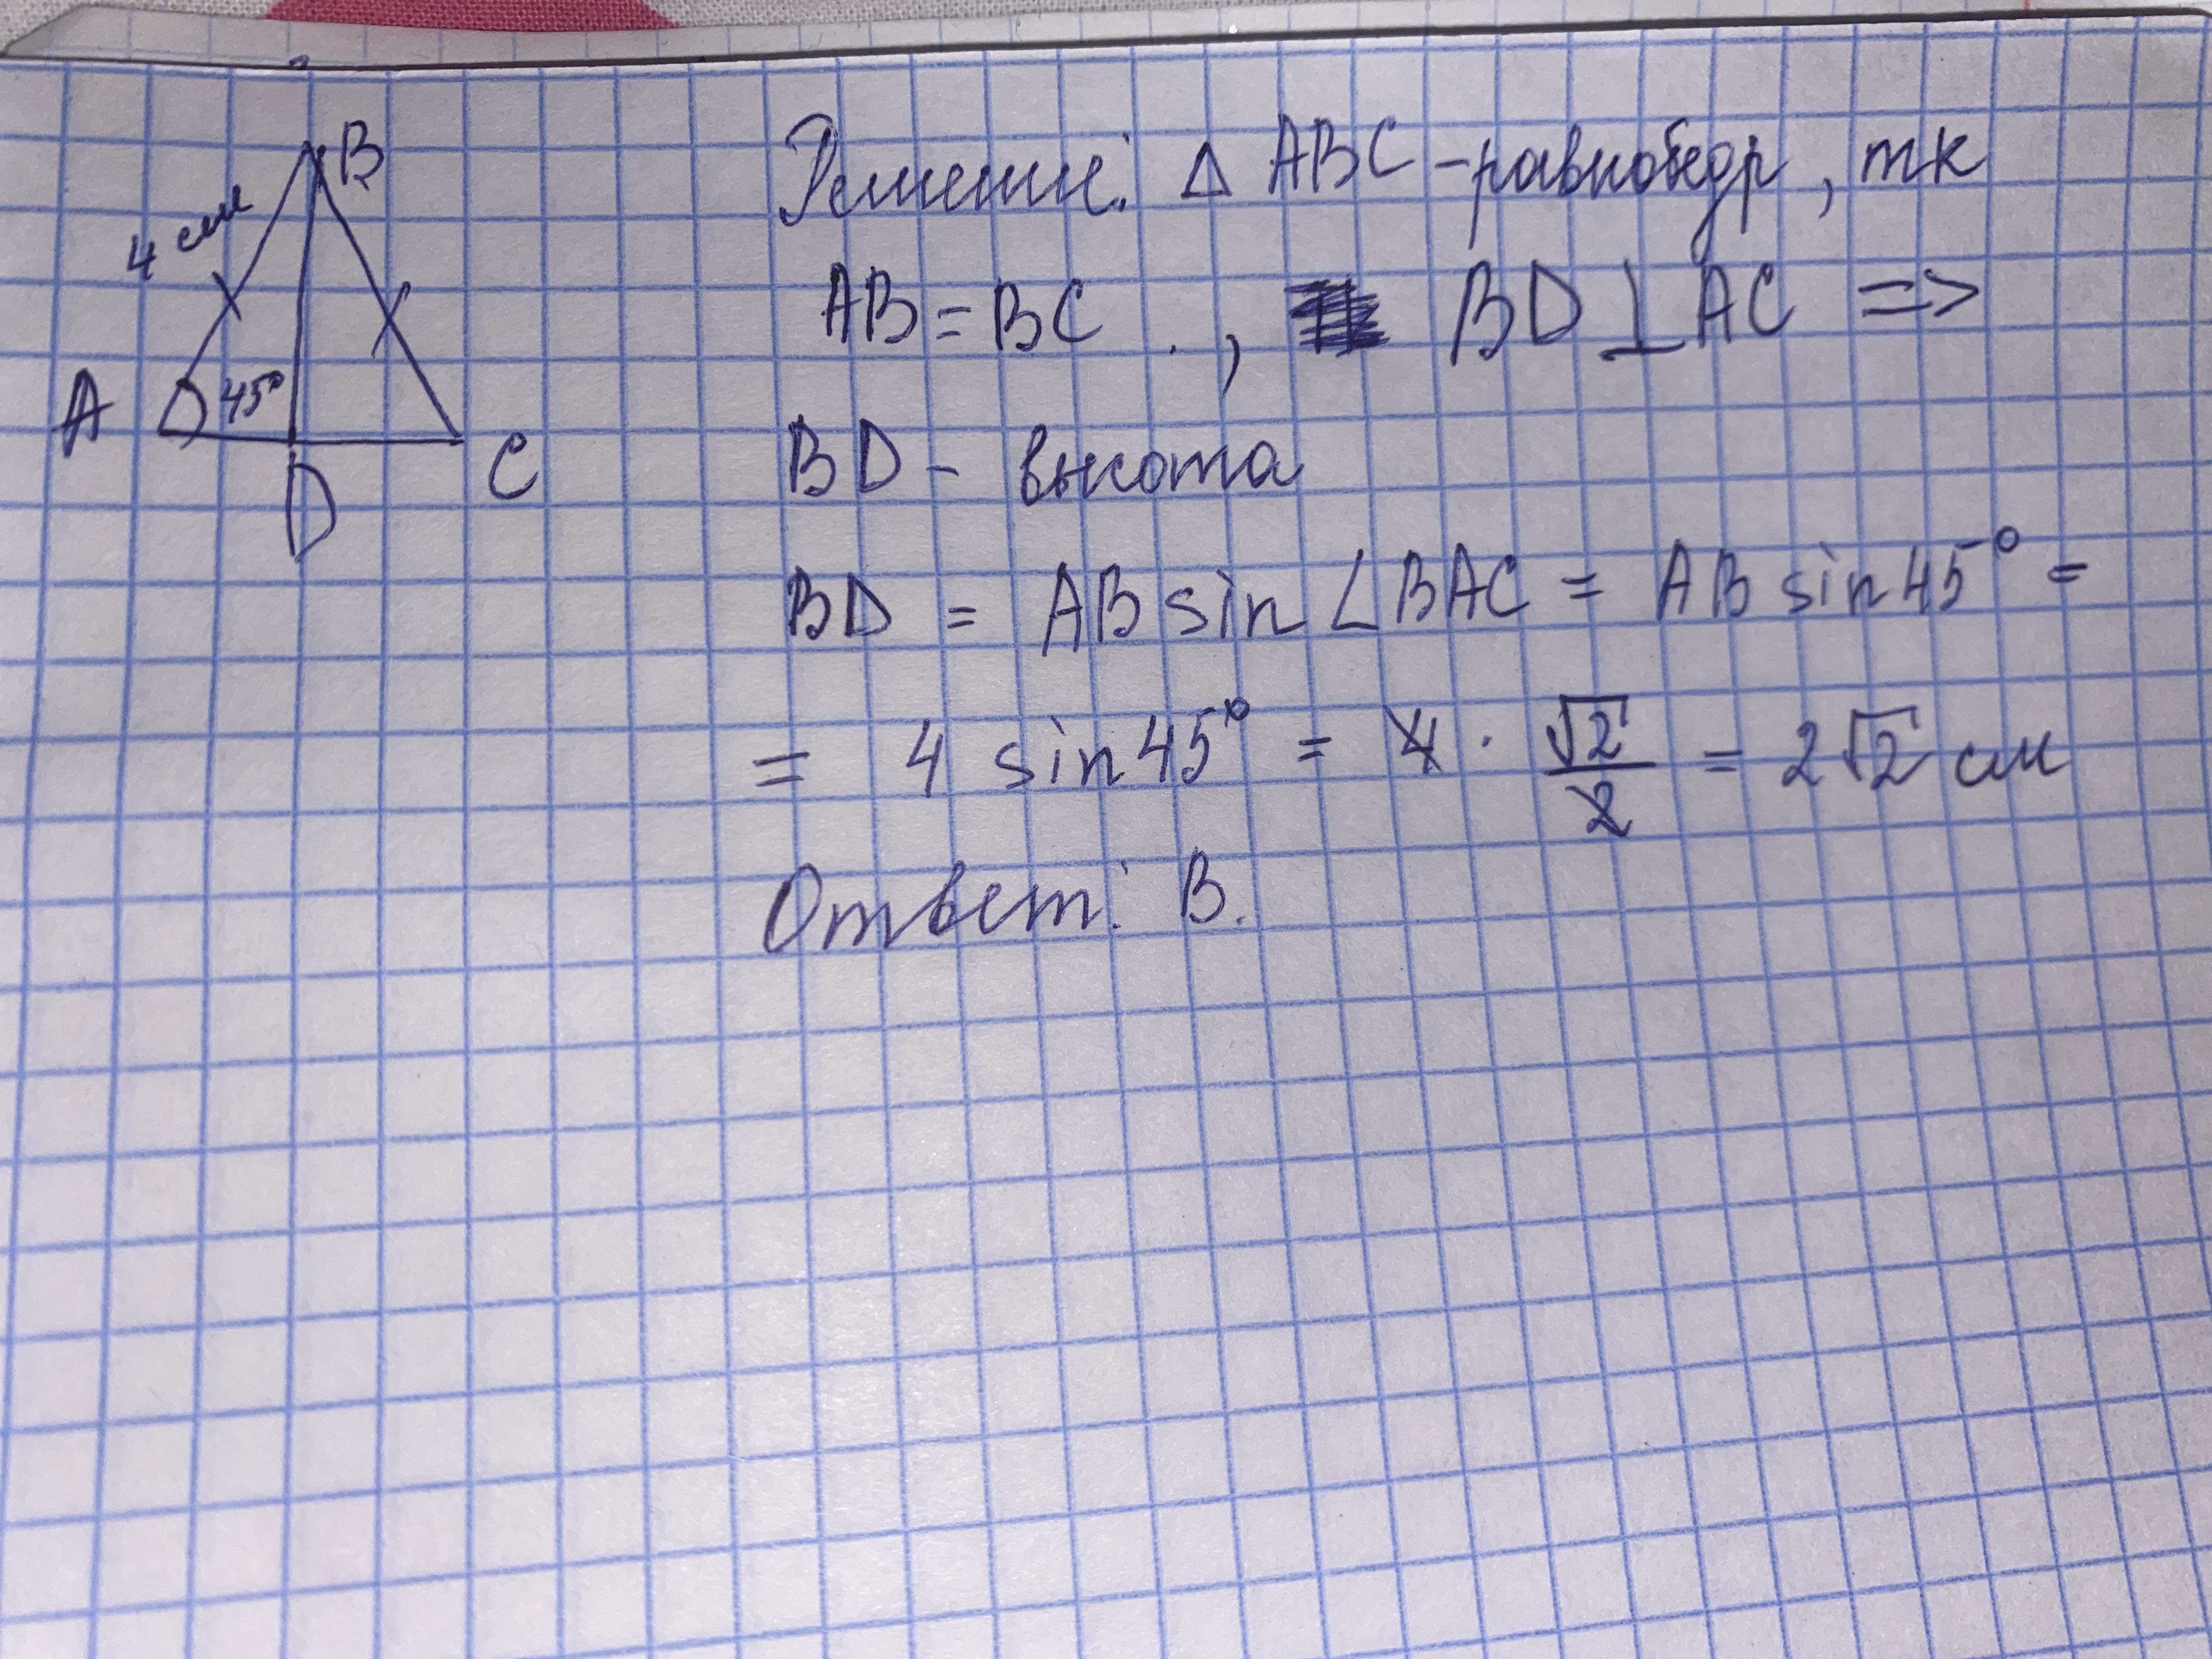 B
4 см
A
45°
D
C
Решение: △ ABC - равнобедр, тк
AB = BC . , BD ⊥ AC =>
BD - высота
BD = AB sin ∠BAC = AB sin 45° =
= 4 sin 45° = 4 · √2/2 = 2√2 см
Ответ: В.